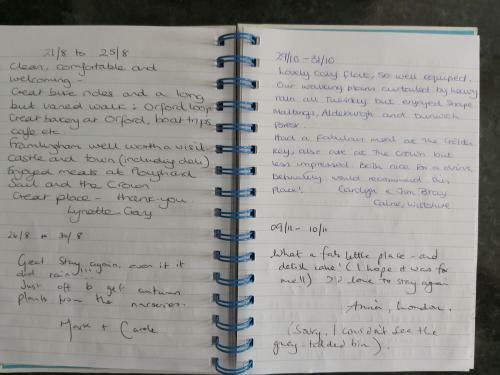 21/8 to 25/8
Clean, comfortable and
welcoming -
Great bike rides and a long
but varied walk : Orford loop
Great bakery at Orford, boat trips
cafe etc.
Framlingham well worth a visit.
castle and town (including deli)
Enjoyed meals at Plough and
Sail and the Crown
Great place - thank you
Lynette Gray
26/8 to 30/8
Great stay again, even if it
did rain!!!
Just off to get autumn
plants from the nurseries.
Mark + Carole
29/10 - 31/10
Lovely cosy flat, so well equipped.
Our walking plans curtailed by heavy
rain all Tuesday but enjoyed Snape
Maltings, Aldeburgh and Dunwich
Forest.
Had a fabulous meal at The Golden
Key, also ate at The Crown but
less impressed. Both nice for a drink,
Definitely would recommend this
place! Carolyn & Jim Bray
Calne, Wiltshire
09/11 - 10/11
What a fab little place - and
delish cake! (I hope it was for
me!!) I'd love to stay again
London.
(Sorry, I couldn't see the
grey-lidded bin).